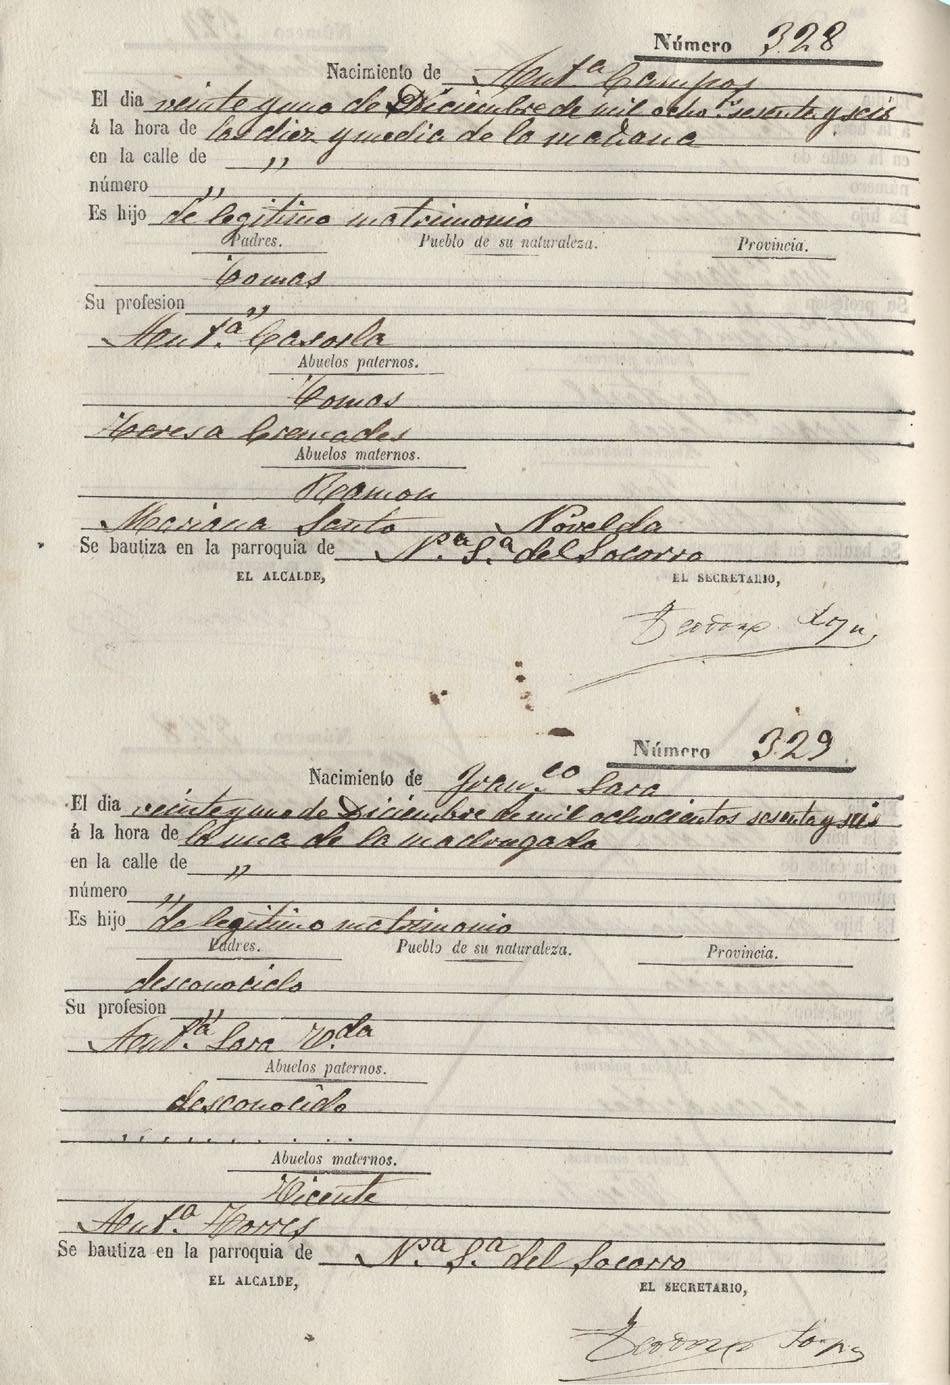 Número 328
Nacimiento de Ant.a Campos
El dia veinte y uno de Diciembre de mil ocho.tos sesenta y seis
á la hora de las diez y media de la mañana
en la calle de "
número "
Es hijo de legitimo matrimonio
Padres. Pueblo de su naturaleza. Provincia.
Tomas
Su profesion "
Ant.a Casorla
Abuelos paternos.
Tomas
Teresa Cremades
Abuelos maternos.
Ramon
Mariana Santo Novelda
Se bautiza en la parroquia de N.a S.a del Socorro
EL ALCALDE, EL SECRETARIO,
Número 329
Nacimiento de Fran.co Sara
El dia veinte y uno de Diciembre de mil ochocientos sesenta y seis
á la hora de la una de la madrugada
en la calle de "
número "
Es hijo de legitimo matrimonio
Padres. Pueblo de su naturaleza. Provincia.
desconocido
Su profesion "
Ant.a Sara V.da
Abuelos paternos.
desconocido
Abuelos maternos.
Vicente
Ant.a Torres
Se bautiza en la parroquia de N.a S.a del Socorro
EL ALCALDE, EL SECRETARIO,